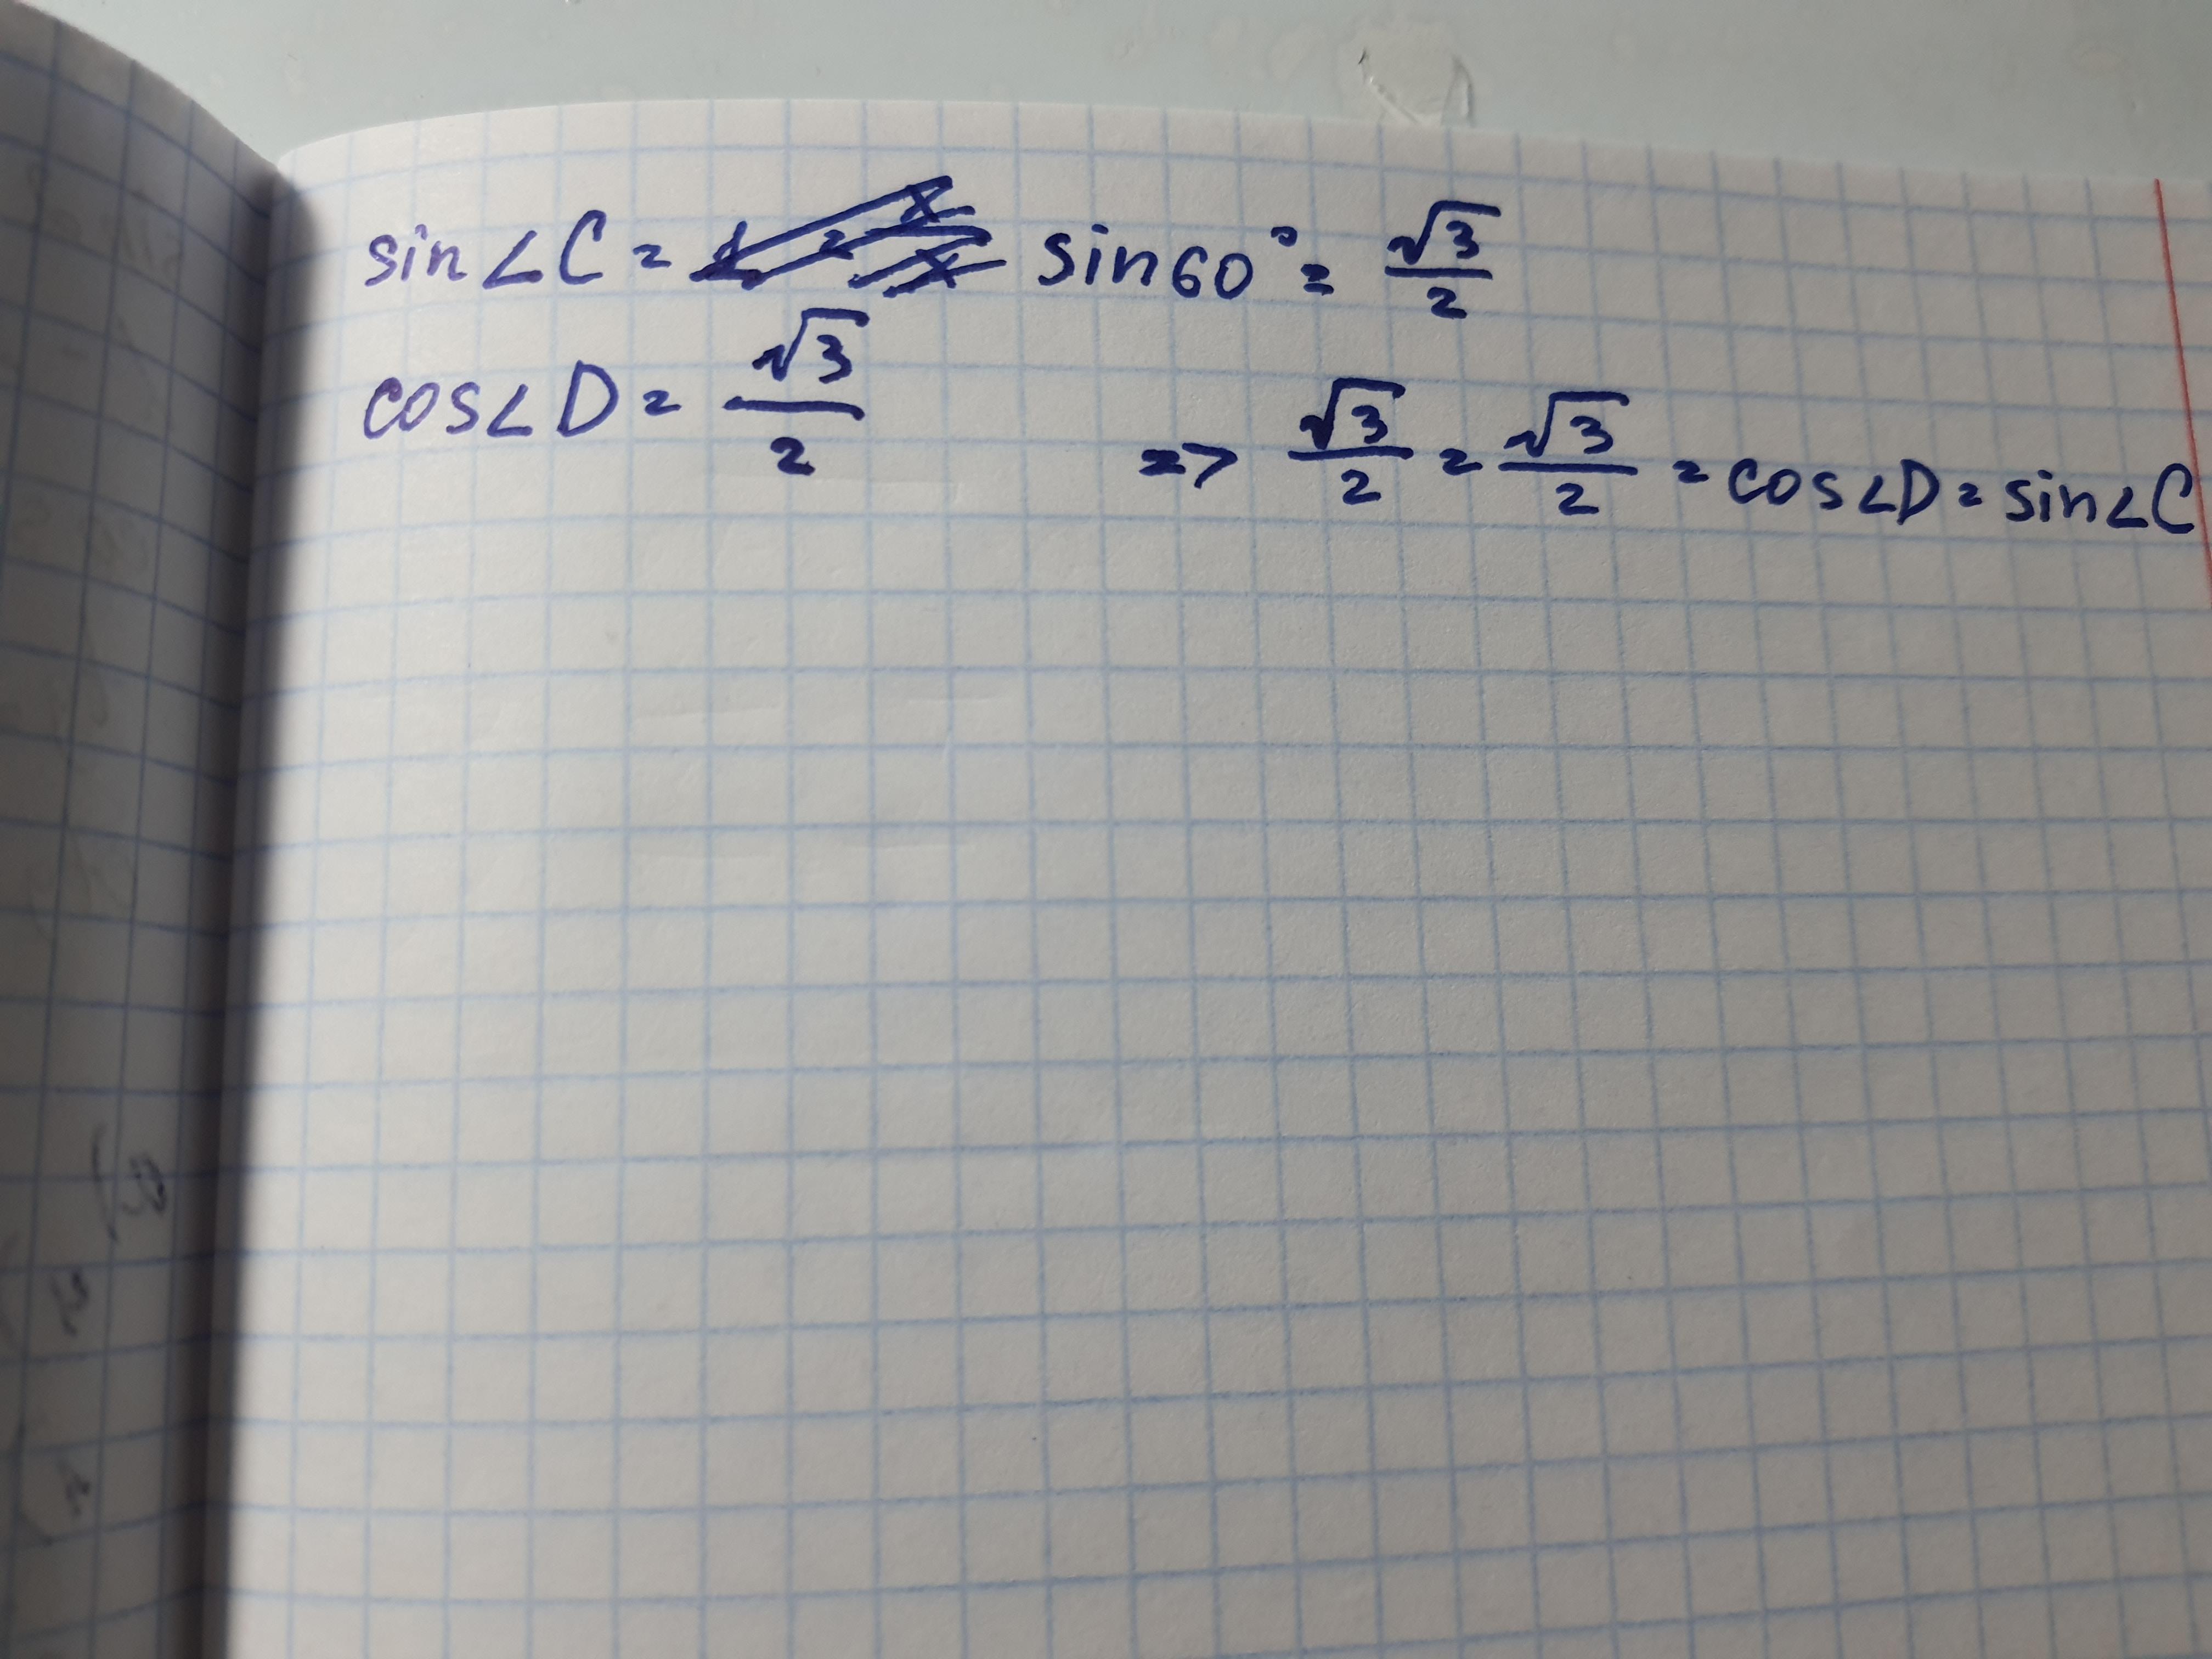 sin∠C = sin60° = √3/2
cos∠D = √3/2
=> √3/2 = √3/2 = cos∠D = sin∠C